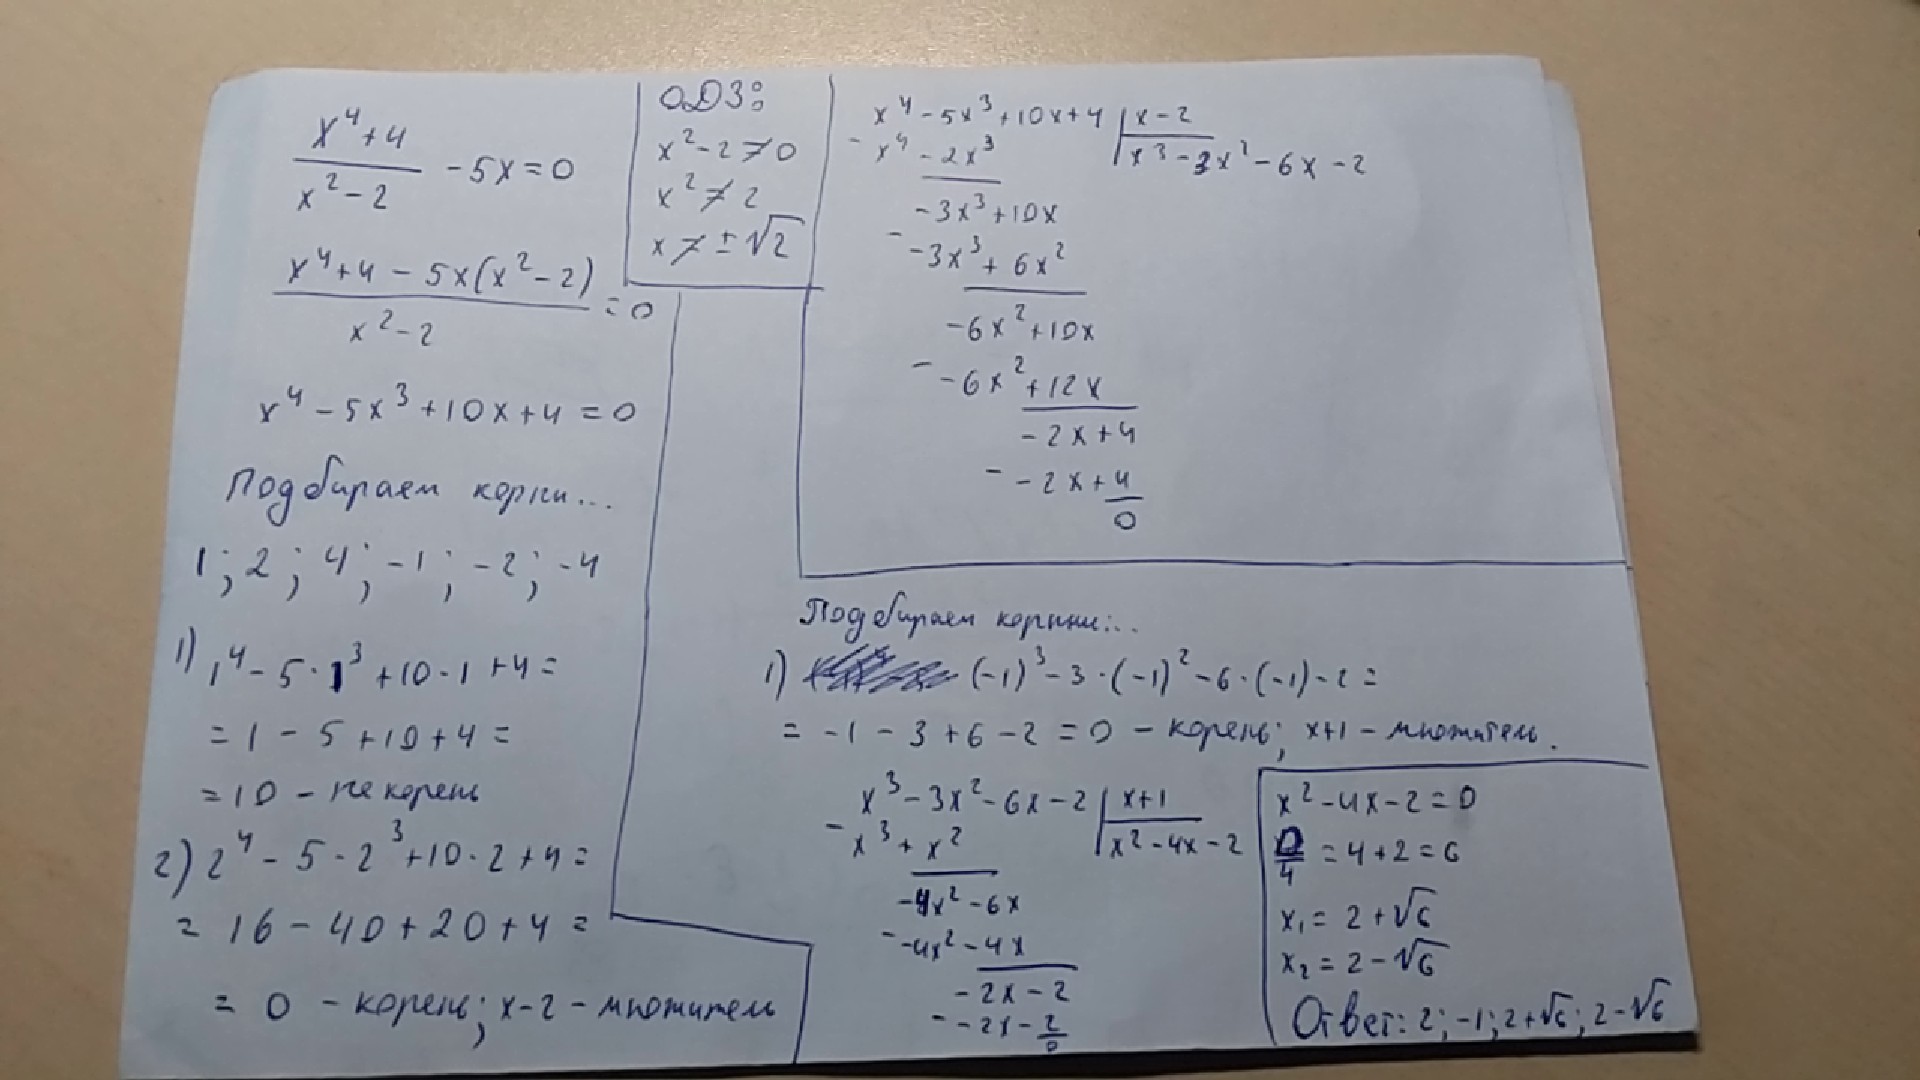 x⁴+4
x²-2
-5x=0
x⁴+4-5x(x²-2)
x²-2
=0
x⁴-5x³+10x+4=0
Подбираем корни...
1; 2; 4; -1; -2; -4
1) 1⁴-5·1³+10·1+4=
=1-5+10+4=
=10 - не корень
2) 2⁴-5·2³+10·2+4=
=16-40+20+4=
=0 - корень; x-2 - множитель
ОДЗ:
x²-2≠0
x²≠2
x≠±√2
x⁴-5x³+10x+4 | x-2
- x⁴-2x³ | x³-3x²-6x-2
-3x³+10x
- -3x³+6x²
-6x²+10x
- -6x²+12x
-2x+4
- -2x+4
0
Подбираем корни:..
1) (-1)³-3·(-1)²-6·(-1)-2=
=-1-3+6-2=0 - корень; x+1 - множитель.
x³-3x²-6x-2 | x+1
- x³+x² | x²-4x-2
-4x²-6x
- -4x²-4x
-2x-2
- -2x-2
0
x²-4x-2=0
D/4=4+2=6
x₁=2+√6
x₂=2-√6
Ответ: 2; -1; 2+√6; 2-√6